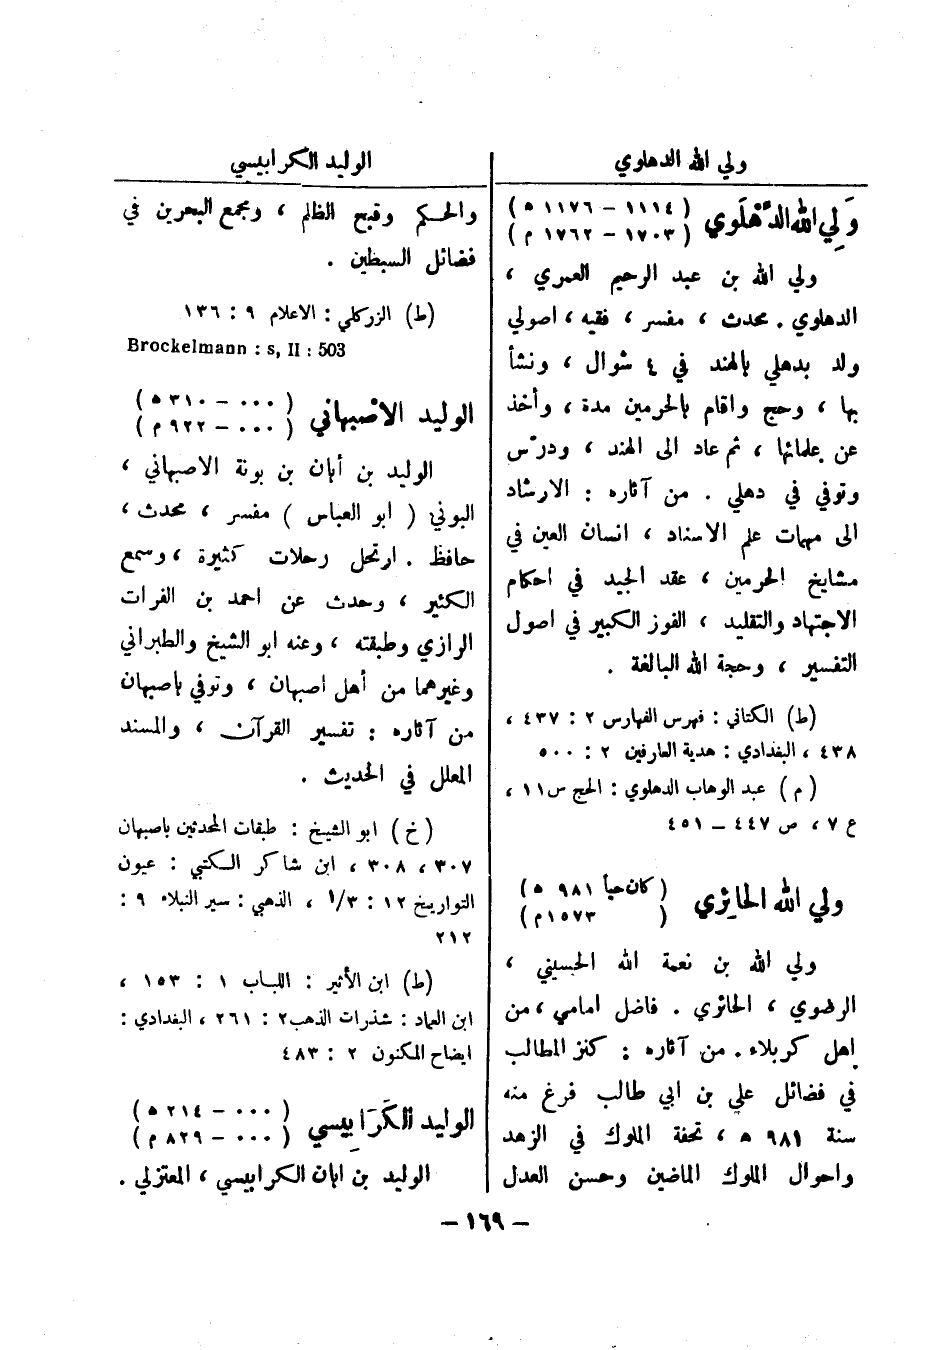 ولي الله الدهلوي
وَلي الله الدَّهْلَوي (١١١٤ – ١١٧٦ ه)
(١٧٠٣ – ١٧٦٢ م)
ولي الله بن عبد الرحيم العمري ،
الدهلوي . محدث ، مفسر ، فقيه ، اصولي
ولد بدهلي بالهند في ٤ شوال ، ونشأ
بها ، وحج واقام بالحرمين مدة ، وأخذ
عن علمائها ، ثم عاد الى الهند ، ودرّس
وتوفي في دهلي . من آثاره : الارشاد
الى مهمات علم الاسناد ، انسان العين في
مشايخ الحرمين ، عقد الجيد في احكام
الاجتهاد والتقليد ، الفوز الكبير في اصول
التفسير ، وحجة الله البالغة .
(ط) الكتاني : فهرس الفهارس ٢ : ٤٣٧ ،
٤٣٨ ، البغدادي : هدية العارفين ٢ : ٥٠٠
(م) عبد الوهاب الدهلوي : الحج س١١ ،
ع ٧ ، ص ٤٤٧ – ٤٥١
ولي الله الحائري (كان حياً ٩٨١ ه)
( ١٥٧٣م)
ولي الله بن نعمة الله الحسيني ،
الرضوي ، الحائري . فاضل امامي ، من
اهل كربلاء . من آثاره : كنز المطالب
في فضائل علي بن ابي طالب فرغ منه
سنة ٩٨١ ه ، تحفة الملوك في الزهد
واحوال الملوك الماضين وحسن العدل
الوليد الكرابيسي
والحكم وقبح الظالم ، ومجمع البحرين في
فضائل السبطين .
(ط) الزركلي : الاعلام ٩ : ١٣٦
Brockelmann : s, II : 503
الوليد الاصْبهاني (٠٠٠ – ٣١٠ ه)
(٠٠٠ – ٩٢٢ م)
الوليد بن أبان بن بونة الاصبهاني ،
البوني ( ابو العباس ) مفسر ، محدث ،
حافظ . ارتحل رحلات كثيرة ، وسمع
الكثير ، وحدث عن احمد بن الفرات
الرازي وطبقته ، وعنه ابو الشيخ والطبراني
وغيرهما من أهل اصبهان ، وتوفي باصبهان
من آثاره : تفسير القرآن ، والمسند
المعلل في الحديث .
(خ) ابو الشيخ : طبقات المحدثين باصبهان
٣٠٧ ، ٣٠٨ ، ابن شاكر الكتبي : عيون
التواريخ ١٢ : ١/٣ ، الذهبي : سير النبلاء ٩ :
٢١٢
(ط) ابن الأثير : اللباب ١ : ١٥٣ ،
ابن العماد : شذرات الذهب ٢ : ٢٦١ ، البغدادي :
ايضاح المكنون ٢ : ٤٨٣
الوليد الكَرَابِيسي (٠٠٠ – ٢١٤ ه)
(٠٠٠ – ٨٢٩ م)
الوليد بن ابان الكرابيسي ، المعتزلي .
– ١٦٩ –